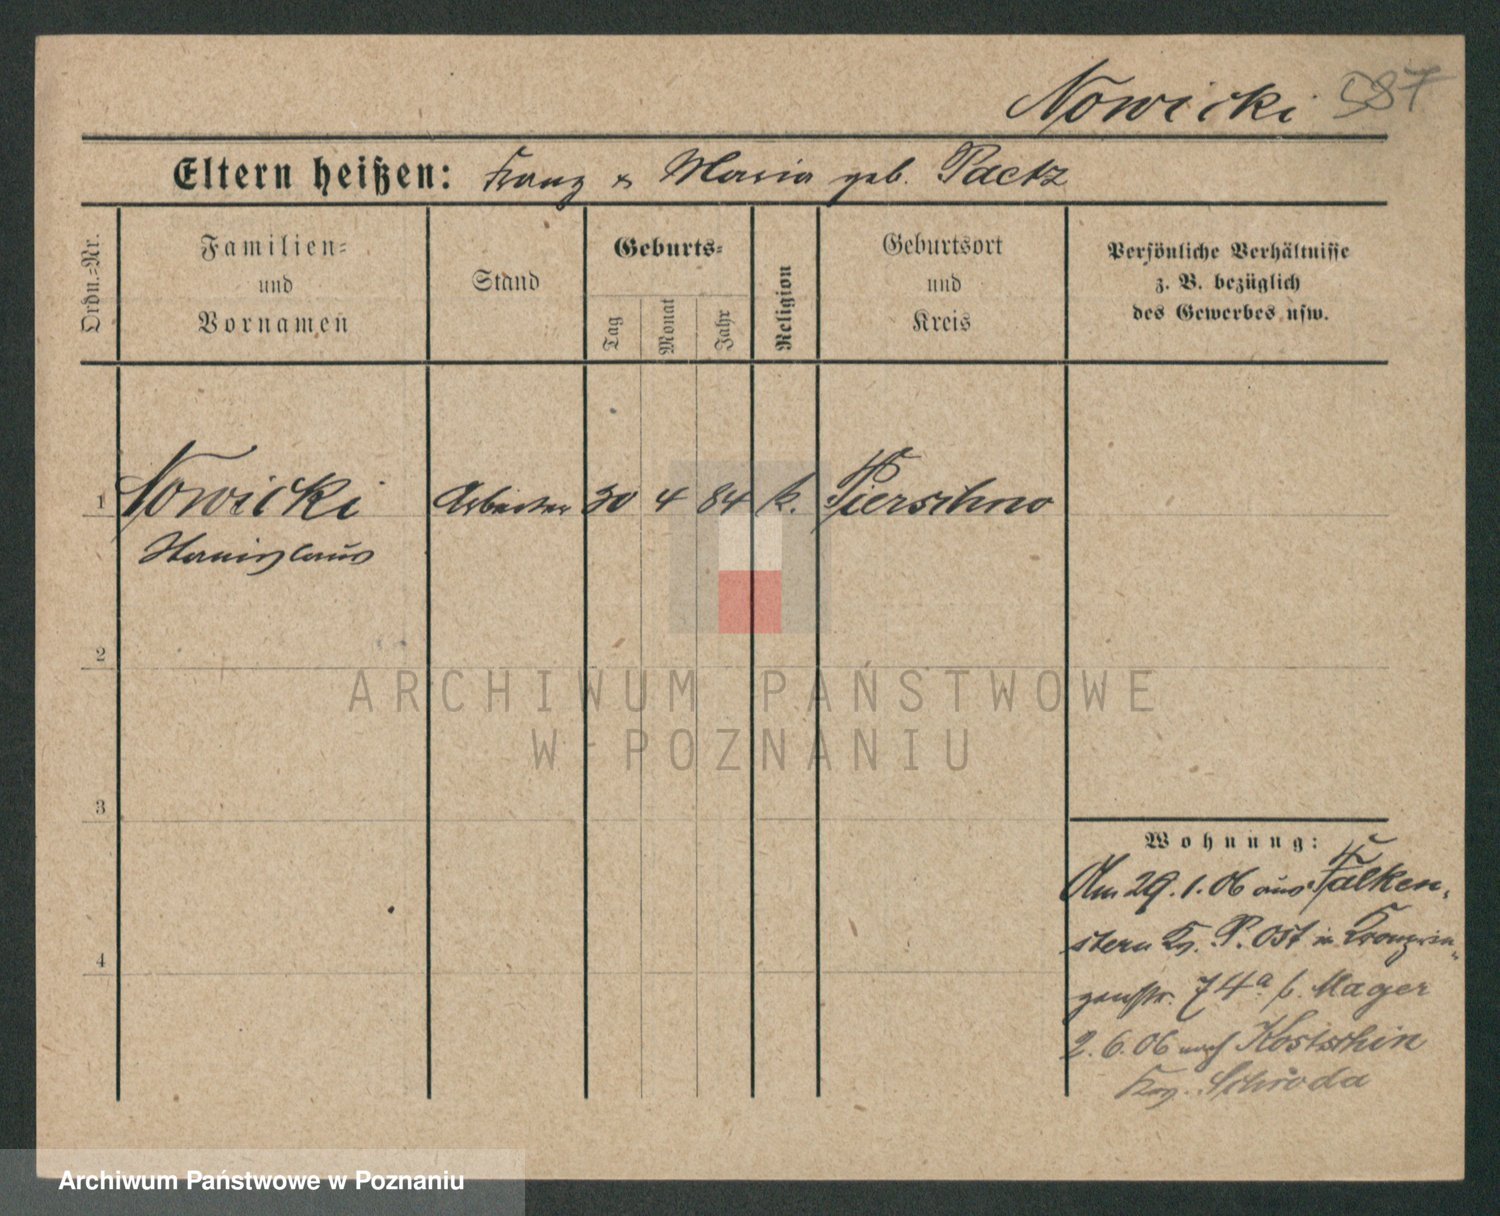 Nowicki 587
Eltern heißen: Franz & Maria geb. Pactz
Ordn.-Nr.
Familien-
und
Vornamen
Stand
Geburts-
Tag
Monat
Jahr
Religion
Geburtsort
und
Kreis
Persönliche Verhältnisse
z. B. bezüglich
des Gewerbes usw.
1 Nowicki Arbeiter 30 4 84 k. Pierschno
Stanislaus
2
3
4
Wohnung:
Am 29.1.06 aus Falken-
stern Kr. P. Ost in Kronprin-
zenstr. 74a b. Mager
2.6.06 nach Kostschin
Kr. Schroda
ARCHIWUM PAŃSTWOWE
W POZNANIU
Archiwum Państwowe w Poznaniu